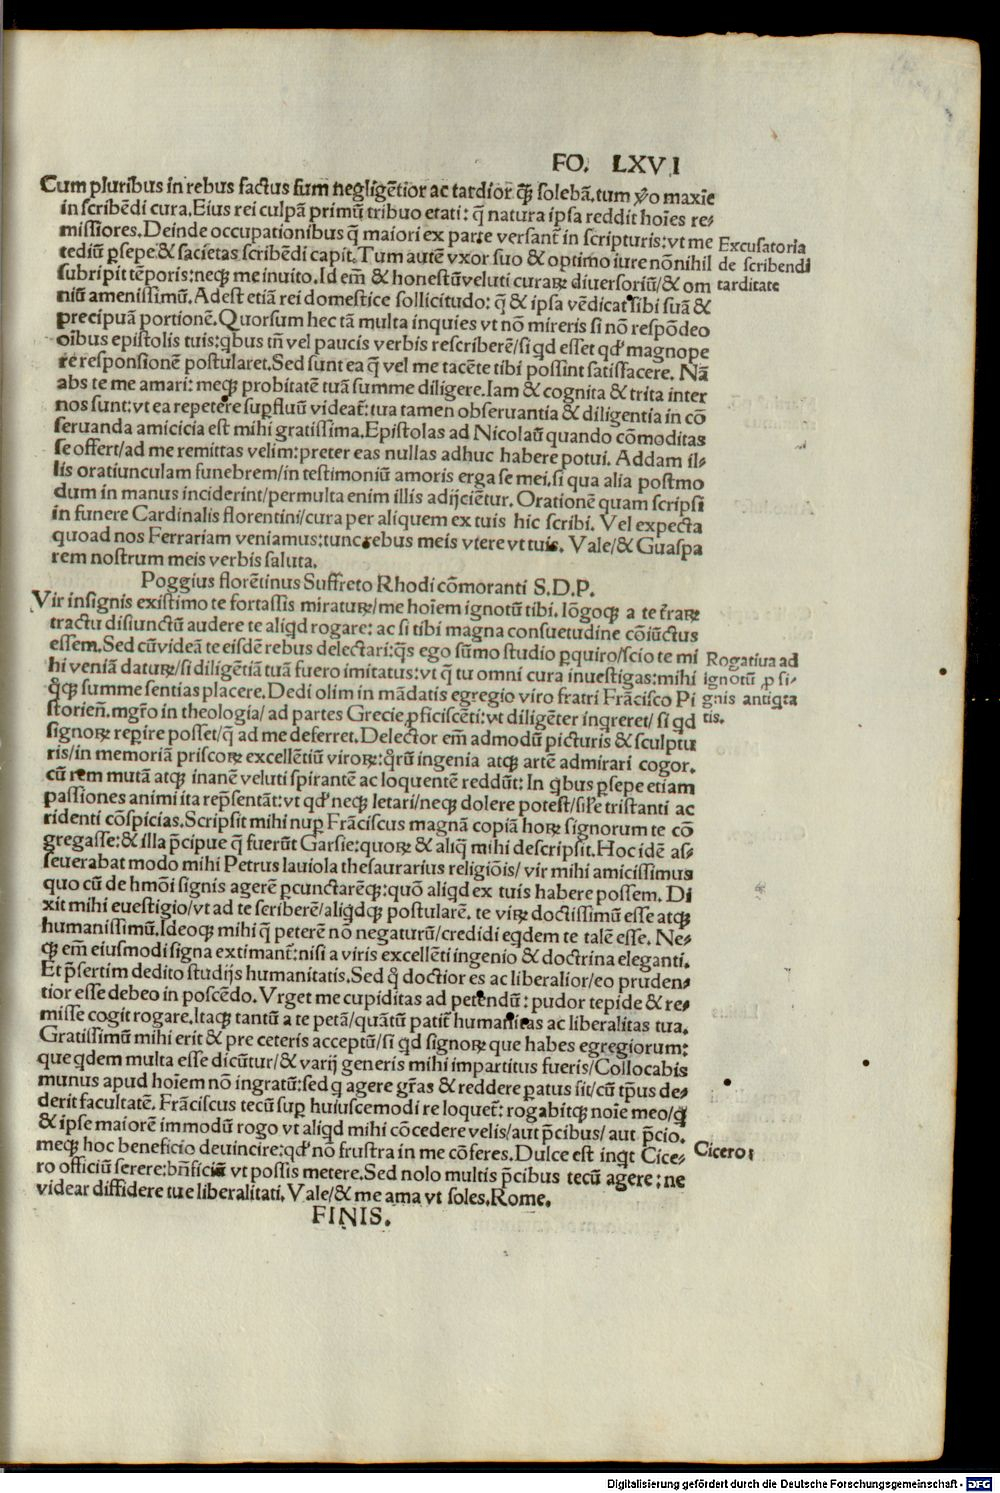 FO. LXVI
Cum pluribus in rebus factus sum negligētior ac tardior qꝫ solebā.tum ṽo maxīe
in scribēdi cura.Eius rei culpā primū tribuo etati: q̄ natura ipsa reddit hoīes re-
missiores.Deinde occupationibus q̄ maiori ex parte versant̄ in scripturis:vt me
Excusatoria
tediū p̱sepe & sacietas scribēdi capit.Tum autē vxor suo & optimo iure nōnihil
de scribendi
subripit tēporis:neqꝫ me inuito.Id em̄ & honestū veluti curaꝝ diuersoriū/& om
tarditate
niū amenissimū.Adest etiā rei domestice sollicitudo: q̄ & ipsa vēdicat sibi suā &
precipuā portionē.Quorsum hec tā multa inquies vt nō mireris si nō respōdeo
oībus epistolis tuis:qbus tn̄ vel paucis verbis rescriberē/si qd esset qd' magnope
re responsionē postularet.Sed sunt ea q̄ vel me tacēte tibi possint satisfacere. Nā
abs te me amari: meqꝫ probitatē tuā summe diligere.Iam & cognita & trita inter
nos sunt:vt ea repetere sup̱fluū videat̄:tua tamen obseruantia & diligentia in cō
seruanda amicicia est mihi gratissima.Epistolas ad Nicolaū quando cōmoditas
se offert/ad me remittas velim:preter eas nullas adhuc habere potui. Addam il-
lis oratiunculam funebrem/in testimoniū amoris erga se mei.si qua alia postmo
dum in manus inciderint/permulta enim illis adijciētur. Orationē quam scripsi
in funere Cardinalis florentini/cura per aliquem ex tuis hic scribi. Vel expecta
quoad nos Ferrariam veniamus:tunc rebus meis vtere vt tuis. Vale/& Guaspa
rem nostrum meis verbis saluta.
Poggius florētinus Suffreto Rhodi cōmoranti S.D.P.
Vir insignis existimo te fortassis miraturꝝ/me hoīem ignotū tibi. lōgoqꝫ a te t̄raꝝ
tractu disiunctū audere te aliqd rogare: ac si tibi magna consuetudine cōiūctus
essem.Sed cū videā te eisdē rebus delectari:qs ego sūmo studio p̱quiro/scio te mi
Rogatiua ad
hi veniā daturꝝ/si diligētiā tuā fuero imitatus:vt q̄ tu omni cura inuestigas:mihi
ignotū p̱ si-
qqꝫ summe sentias placere.Dedi olim in mādatis egregio viro fratri Frācisco Pi
gnis antiqta
storien̄.mgr̄o in theologia/ ad partes Grecie p̱ficiscēti:vt diligēter inqreret/ si qd
tis.
signoꝝ rep̱ire posset/q̄ ad me deferret.Delector em̄ admodū picturis & sculptu
ris/in memoriā priscoꝝ excellētiū viroꝝ:qrū ingenia atqꝫ artē admirari cogor.
cū rem mutā atqꝫ inanē veluti spirantē ac loquentē reddūt: In qbus p̱sepe etiam
passiones animi ita rep̄sentāt:vt qd' neqꝫ letari/neqꝫ dolere potest/sil̄e tristanti ac
ridenti cōspicias.Scripsit mihi nup̱ Frāciscus magnā copiā hoꝝ signorum te cō
gregasse:& illa p̄cipue q̄ fuerūt Garsie:quoꝝ & aliq̄ mihi descripsit.Hoc idē as-
seuerabat modo mihi Petrus lauiola thesaurarius religiōis/ vir mihi amicissimus
quo cū de hmōi signis agerē p̱cunctarēqꝫ:quō aliqd ex tuis habere possem. Di
xit mihi euestigio/vt ad te scriberē/aliqdqꝫ postularē. te viꝝ doctissimū esse atqꝫ
humanissimū.Ideoqꝫ mihi q̄ peterē nō negaturū/credidi eqdem te talē esse. Ne-
qꝫ em̄ eiusmodi signa extimant̄:nisi a viris excellēti ingenio & doctrina eleganti.
Et p̄sertim dedito studijs humanitatis.Sed q̊ doctior es ac liberalior/eo pruden-
tior esse debeo in poscēdo.Vrget me cupiditas ad petendū: pudor tepide & re-
misse cogit rogare.Itaqꝫ tantū a te petā/quātū patit̄ humanitas ac liberalitas tua.
Gratissimū mihi erit & pre ceteris acceptū/si qd signoꝝ que habes egregiorum:
que qdem multa esse dicūtur/& varij generis mihi impartitus fueris/Collocabis
munus apud hoīem nō ingratū:sed q agere gr̄as & reddere p̱atus sit/cū tp̄us de-
derit facultatē. Frāciscus tecū sup̱ huiuscemodi re loquet̄: rogabitqꝫ noīe meo/q̊
& ipse maiorē immodū rogo vt aliqd mihi cōcedere velis/aut p̄cibus/ aut p̄cio.
meqꝫ hoc beneficio deuincire:qd' nō frustra in me cōferes.Dulce est inqt Cice-
Cicero:
ro officiū serere:bn̄ficiū vt possis metere.Sed nolo multis p̄cibus tecū agere: ne
videar diffidere tue liberalitati.Vale/& me ama vt soles.Rome.
FINIS.
Digitalisierung gefördert durch die Deutsche Forschungsgemeinschaft - DFG